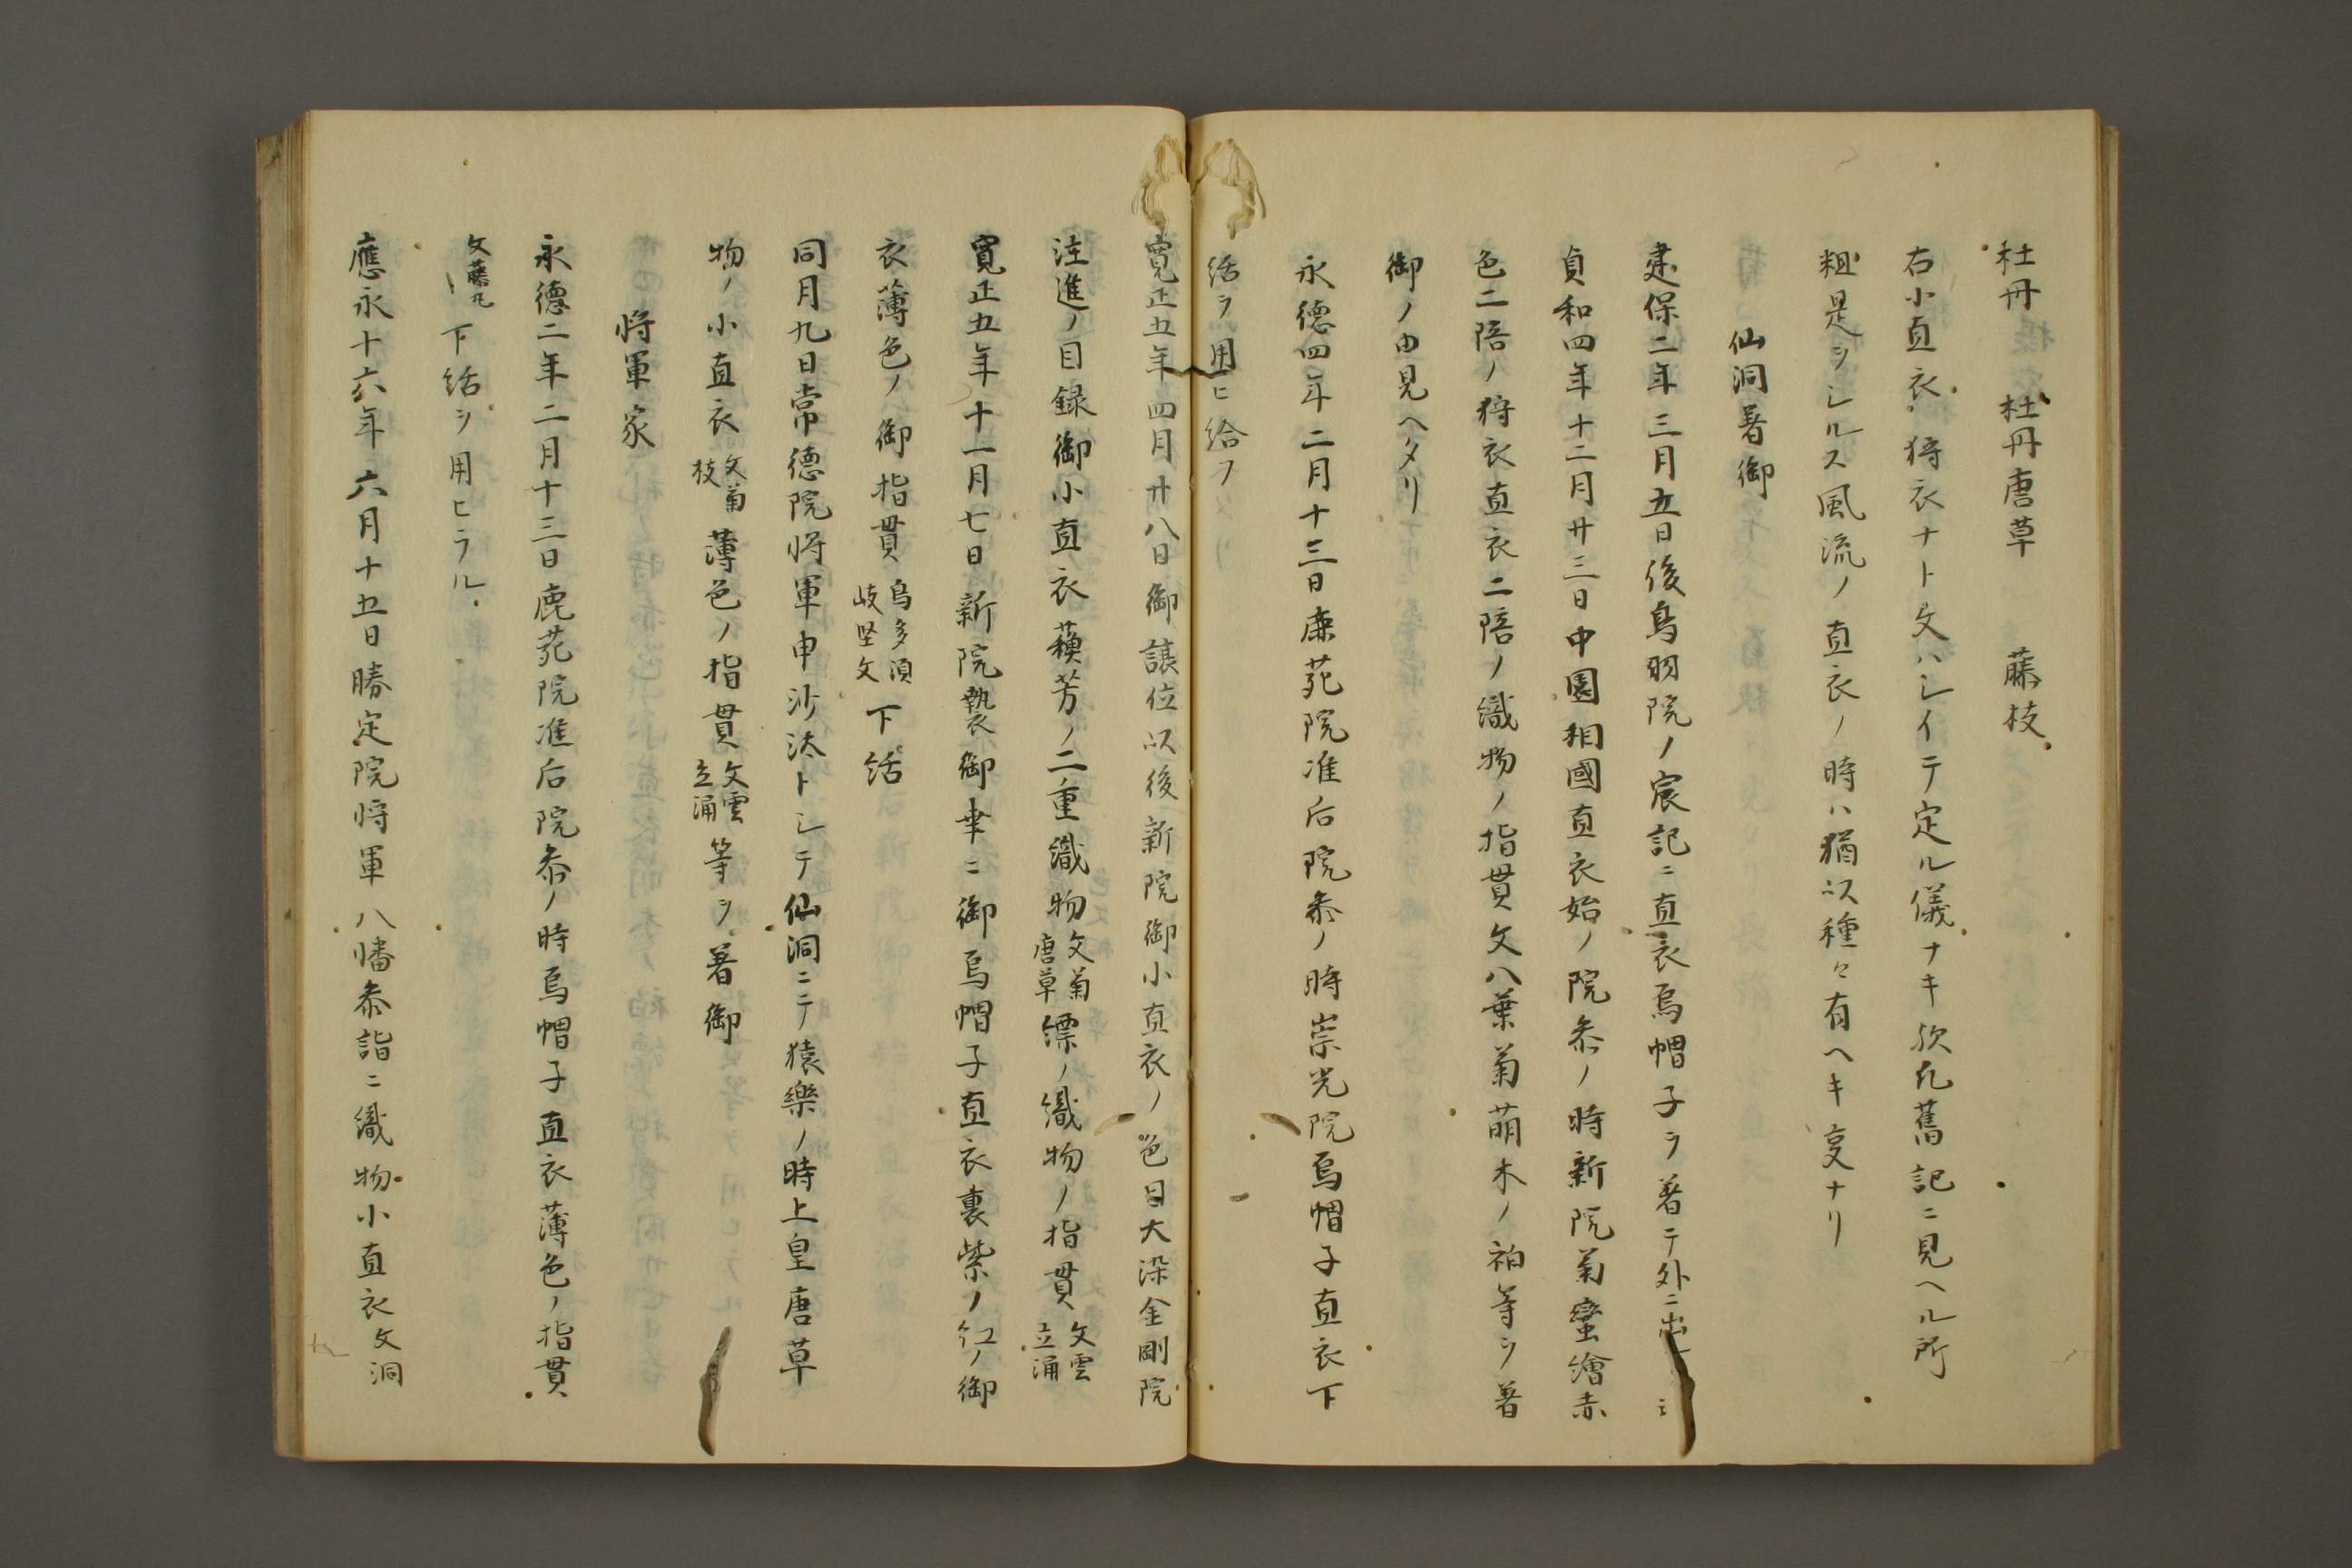 杜丹　杜丹唐草　藤枝
右小直衣狩衣ナト文ハシイテ定ル儀ナキ欤凡舊記ニ見ヘル所
粗是ヲシルス風流ノ直衣ノ時ハ猶以種々有ヘキ叓ナリ
仙洞著御
建保二年三月五日後鳥羽院ノ宸記ニ直衣烏帽子ヲ著テ外ニ出
貞和四年十二月廿三日中園相國直衣始ノ院参ノ時新院菊蠻繪赤
色二陪ノ狩衣直衣二陪ノ織物ノ指貫文八葉菊萌木ノ袙等ヲ著
御ノ由見ヘタリ
永德四年二月十三日鹿苑院准后院参ノ時崇光院烏帽子直衣下
括ヲ用ヒ給フ
寛正五年四月廿八日御讓位以後新院御小直衣ノ色目大染金剛院
注進ノ目録御小直衣蘓芳ノ二重織物文菊唐草縹ノ織物ノ指貫文雲立涌
寛正五年十一月七日新院褻御幸ニ御烏帽子直衣裏紫ノ紅ノ御
衣薄色ノ御指貫鳥多須岐堅文下括
同月九日常德院将軍申沙汰トシテ仙洞ニテ猿樂ノ時上皇唐草
物ノ小直衣文菊枝薄色ノ指貫文雲立涌等ヲ著御
将軍家
永德二年二月十三日鹿苑院准后院参ノ時烏帽子直衣薄色ノ指貫
文藤丸下括ヲ用ヒラル
應永十六年六月十五日勝定院将軍八幡参詣ニ織物小直衣文洞